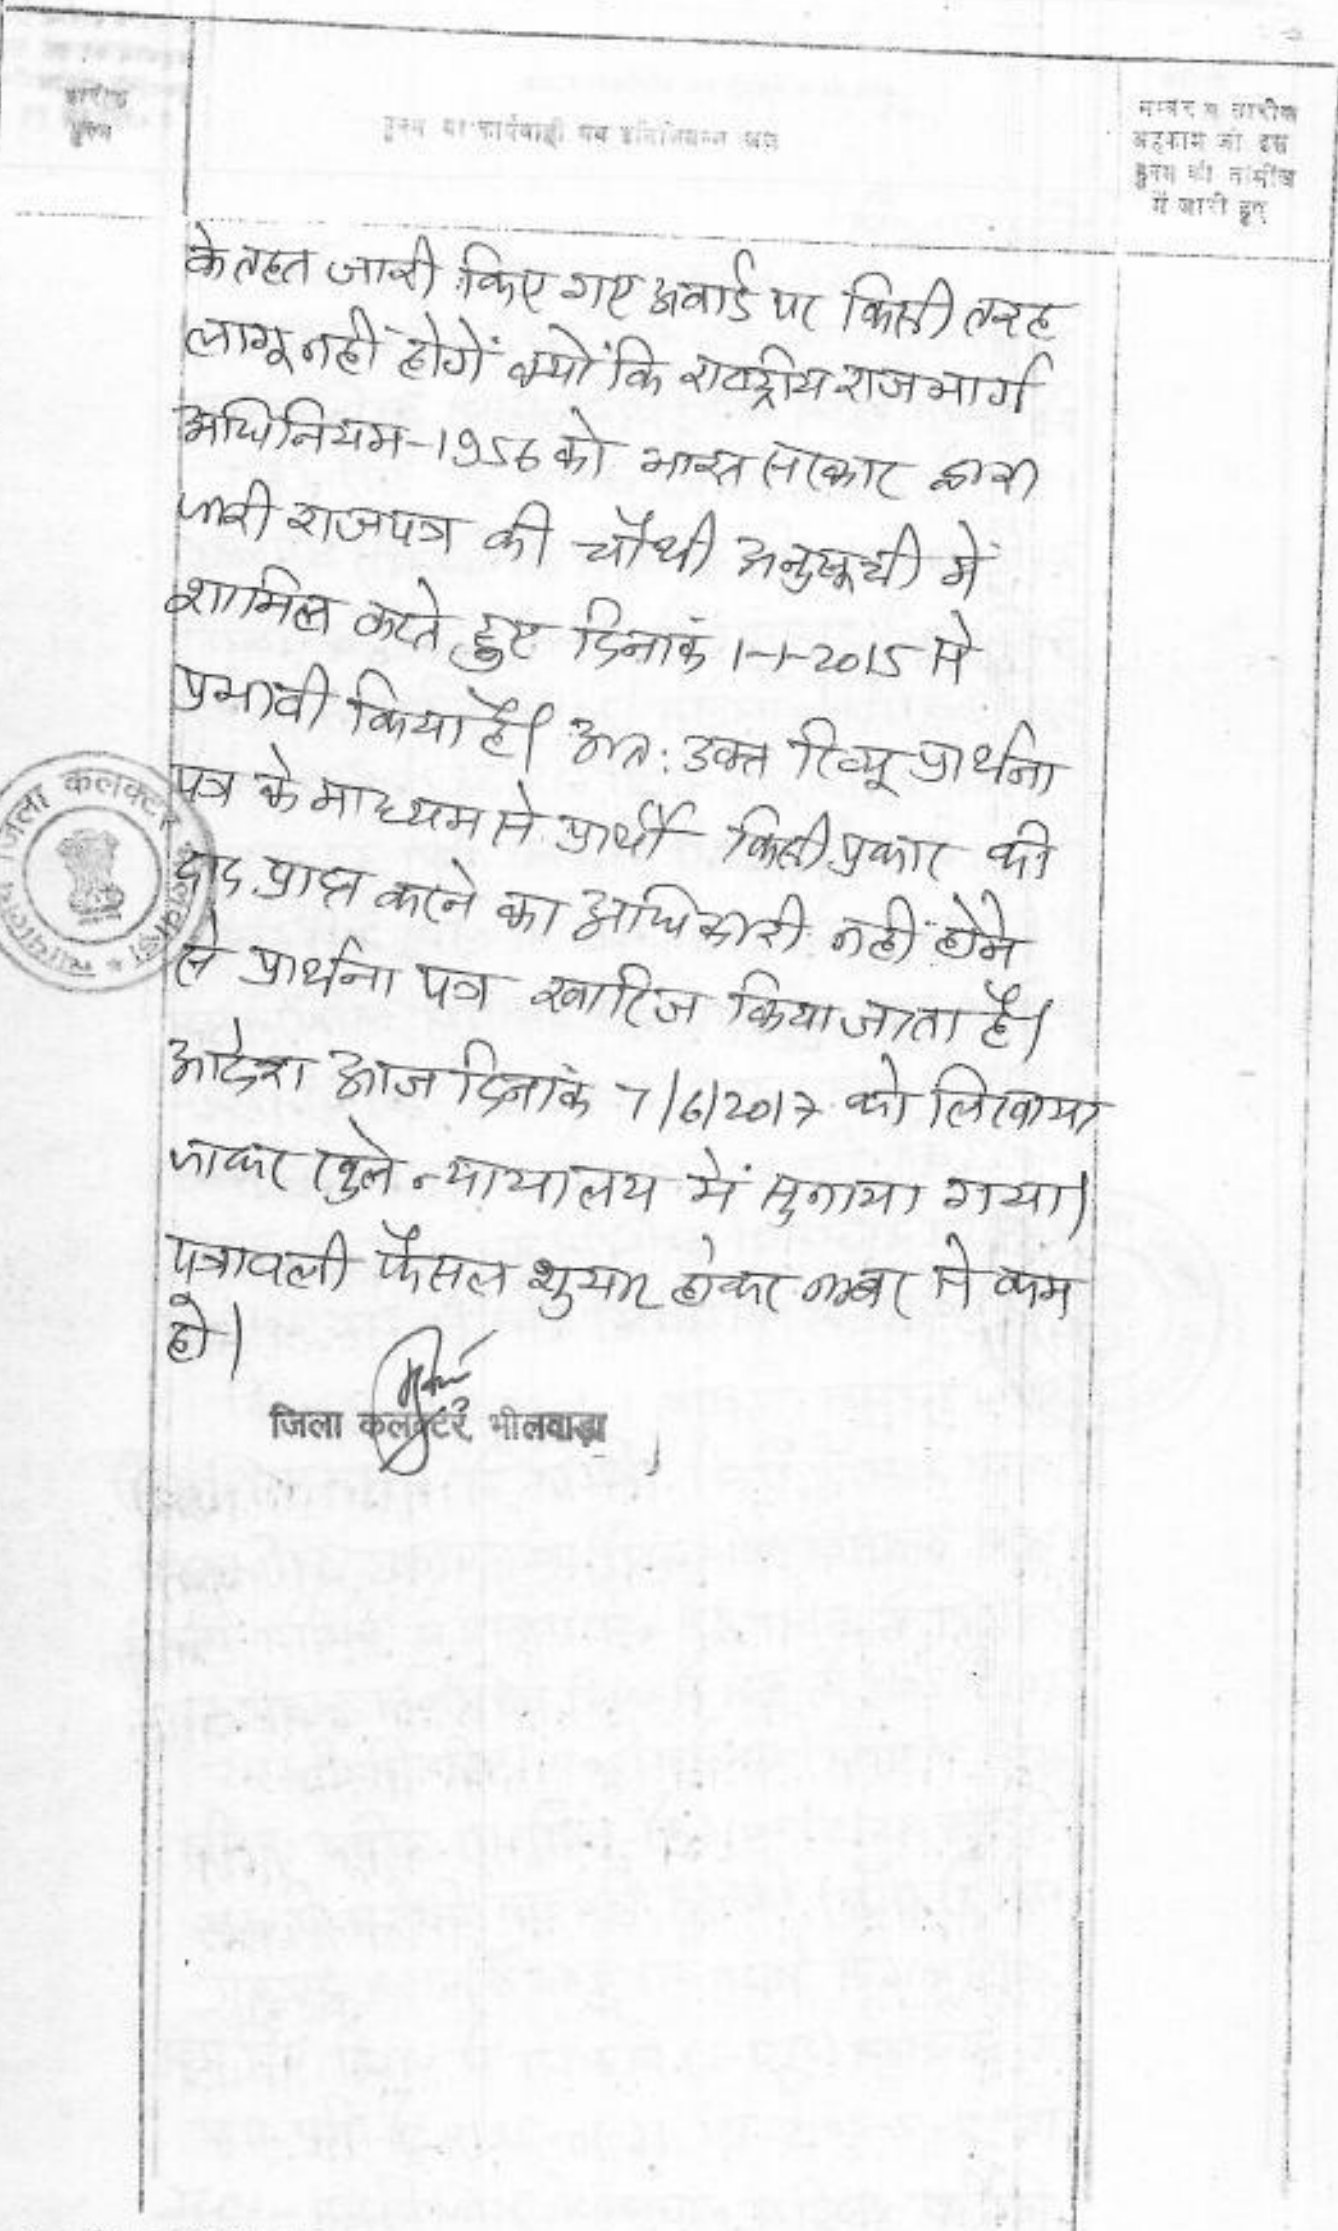 तारीख
हुक्म
हुक्म या कार्यवाही मय इनिशियल्स जज
नम्बर व तारीख
अहकाम जो इस
हुक्म की तामील
में जारी हुए
के तहत जारी किए गए अवार्ड पर किसी तरह
लागू नहीं होगें क्यों कि राष्ट्रीय राजमार्ग
अधिनियम-1956 को भारत सरकार द्वारा
जारी राजपत्र की चौथी अनुसूची में
शामिल करते हुए दिनांक 1-1-2015 से
प्रभावी किया है। अत: उक्त रिव्यू प्रार्थना
पत्र के माध्यम से प्रार्थी किसी प्रकार की
दाद प्राप्त करने का अधिकारी नहीं होने
से प्रार्थना पत्र खारिज किया जाता है।
आदेश आज दिनांक 7/6/2017 को लिखाया
जाकर खुले न्यायालय में सुनाया गया।
पत्रावली फैसल शुमार होकर नम्बर से कम
हो।
जिला कलक्टर, भीलवाड़ा
न्यायालय जिला कलक्टर भीलवाड़ा